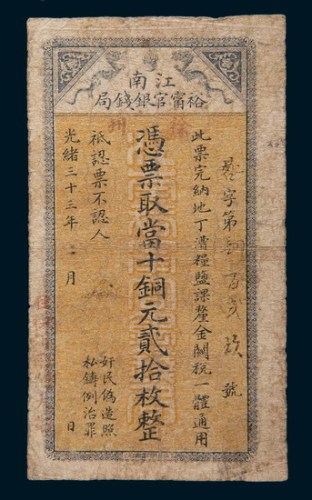 江南
裕甯官銀錢局
蘇州
髮字第 百貳玖號
此票完納地丁漕糧鹽課釐金關稅一體通用
憑票取當十銅元貳拾枚整
祗認票不認人
光緒三十三年 月 日
奸民偽造照
私鑄例治罪